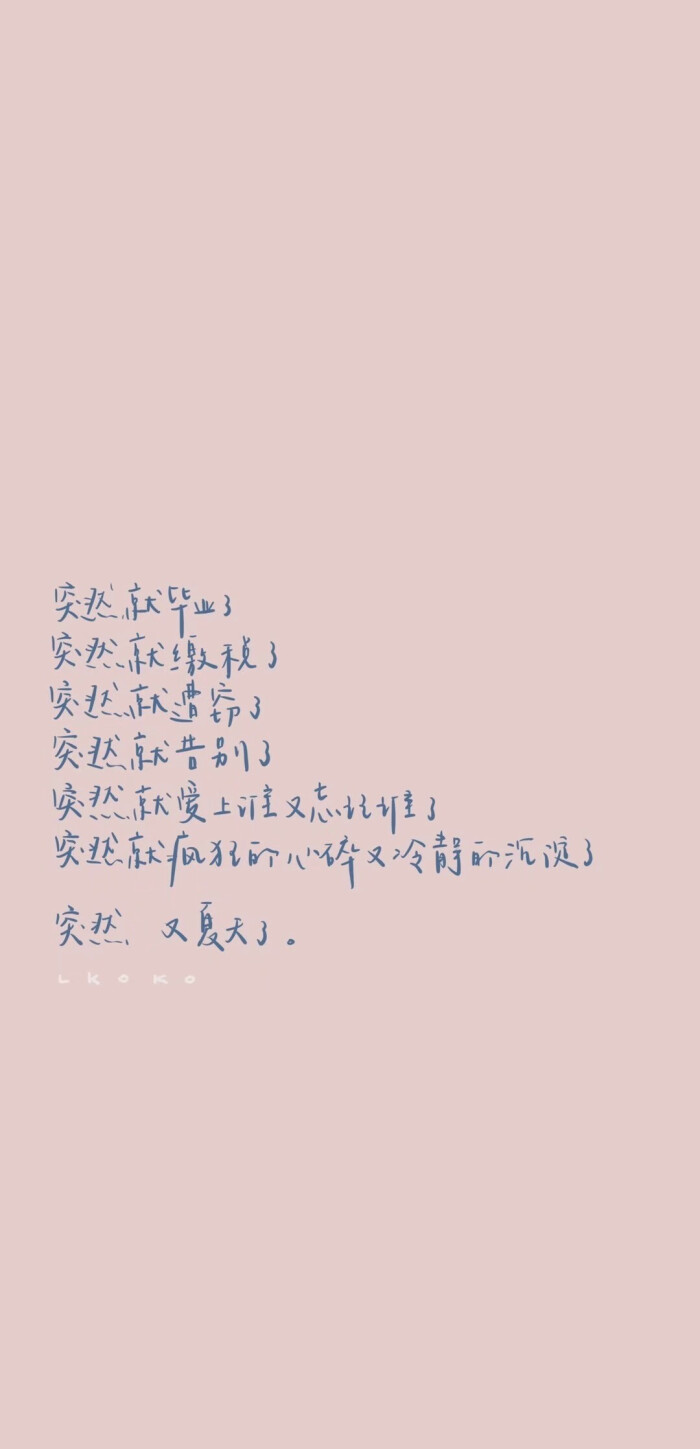 突然就毕业了
突然就缴税了
突然就遭窃了
突然就告别了
突然就爱上谁又忘记谁了
突然就疯狂的心碎又冷静的沉淀了
突然 又夏天了。
LKOKO